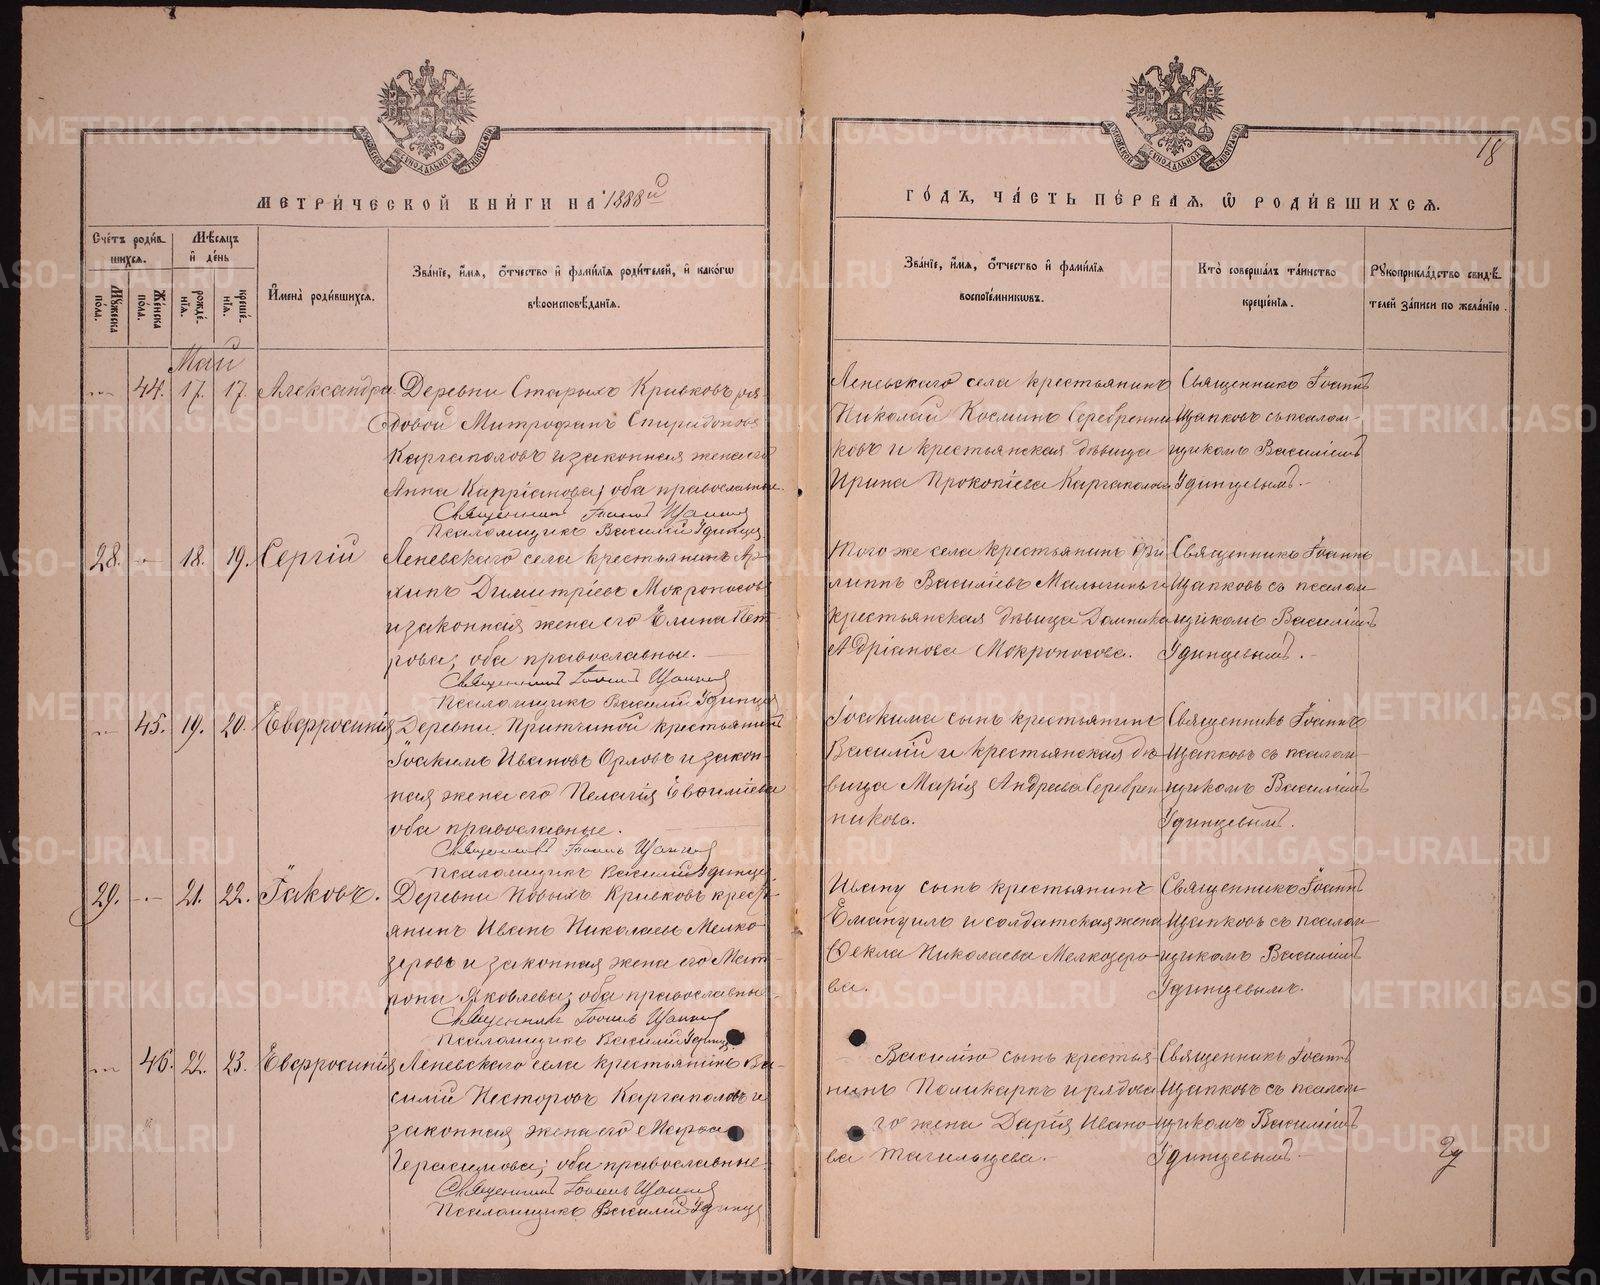 МЕТРИ́ЧЕСКОЙ КНИ́ГИ НА 1888й
ГО́ДЪ, ЧА́СТЬ ПЕ́РВАЯ, Ѡ РОДИ́ВШИХСЯ.
18
Сче́тъ роди́в-
шихся.
Мѣ́сяцъ
и́ де́нь
Му́жеска
по́ла.
Же́нска
по́ла.
рожде́-
нїя.
креще́-
нїя.
И҆мена̀ роди́вшихся.
Зва́нїе, и҆́мя, ѻ҆́тчество и҆ фами́лїя роди́телей, и҆ како́гѡ
вѣроисповѣ́данїя.
Зва́нїе, и҆́мя, ѻ҆́тчество и҆ фами́лїя
воспрїе́мниковъ.
Кто̀ соверша́лъ та́инство
креще́нїя.
Рꙋкоприкла́дство свидѣ́-
телей за́писи по жела́нїю.
Май
44. 17. 17. Александра
Деревни Старыхъ Кривковъ ря
довой Митрофанъ Спиридоновъ
Каргаполовъ и законная жена его
Анна Кипріанова; оба православные.
Священникъ Іоаннъ Щапковъ
Псаломщикъ Василій Удинцев
Леневскаго села крестьянинъ
Николай Косминъ Серебренни
ковъ и крестьянская дѣвица
Ирина Прокопіева Каргаполова
Священникъ Іоаннъ
Щапковъ съ псалом-
щикомъ Василіемъ
Удинцевымъ.
28. 18. 19. Сергій
Леневскаго села крестьянинъ Ар-
хипъ Димитріевъ Мокроносовъ
и законная жена его Елина Пет-
рова; оба православные.
Священникъ Іоаннъ Щапков
Псаломщикъ Василій Удинцев
Того же села крестьянинъ Фи
липпъ Василіевъ Малыгинъ и
крестьянская дѣвица Домника
Адріанова Мокроносова.
Священникъ Іоаннъ
Щапковъ съ псалом-
щикомъ Василіемъ
Удинцевымъ.
45. 19. 20. Евфросинія
Деревни Притчиной крестьянинъ
Іоакимъ Ивановъ Орловъ и закон-
ная жена его Пелагія Евфиміева
оба православные.
Священникъ Іоаннъ Щапков
Псаломщикъ Василій Удинцев
Іоакима сынъ крестьянинъ
Василій и крестьянская дѣ-
вица Марія Андреева Серебрен-
никова.
Священникъ Іоаннъ
Щапковъ съ псалом-
щикомъ Василіемъ
Удинцевымъ.
29. 21. 22. Іаковъ.
Деревни Новыхъ Кривковъ крест-
янинъ Иванъ Николаевъ Мелко-
зеровъ и законная жена его Мат-
рона Яковлева; оба православные.
Священникъ Іоаннъ Щапков
Псаломщикъ Василій Удинцев
Ивану сынъ крестьянинъ
Емануилъ и солдатская жена
Ѳекла Николаева Мелкозеро-
ва.
Священникъ Іоаннъ
Щапковъ съ псалом-
щикомъ Василіемъ
Удинцевымъ.
46. 22. 23. Евфросинія
Леневскаго села крестьянинъ Ва-
силій Несторовъ Каргаполовъ и
законная жена его Марѳа
Герасимова; оба православные.
Священникъ Іоаннъ Щапков
Псаломщикъ Василій Удинцев
Василію сынъ крестья
нинъ Поликарпъ и рядова
го жена Дарія Ивано-
ва Тагильцева.
Священникъ Іоаннъ
Щапковъ съ псалом-
щикомъ Василіемъ
Удинцевымъ.
METRIKI.GASO-URAL.RU